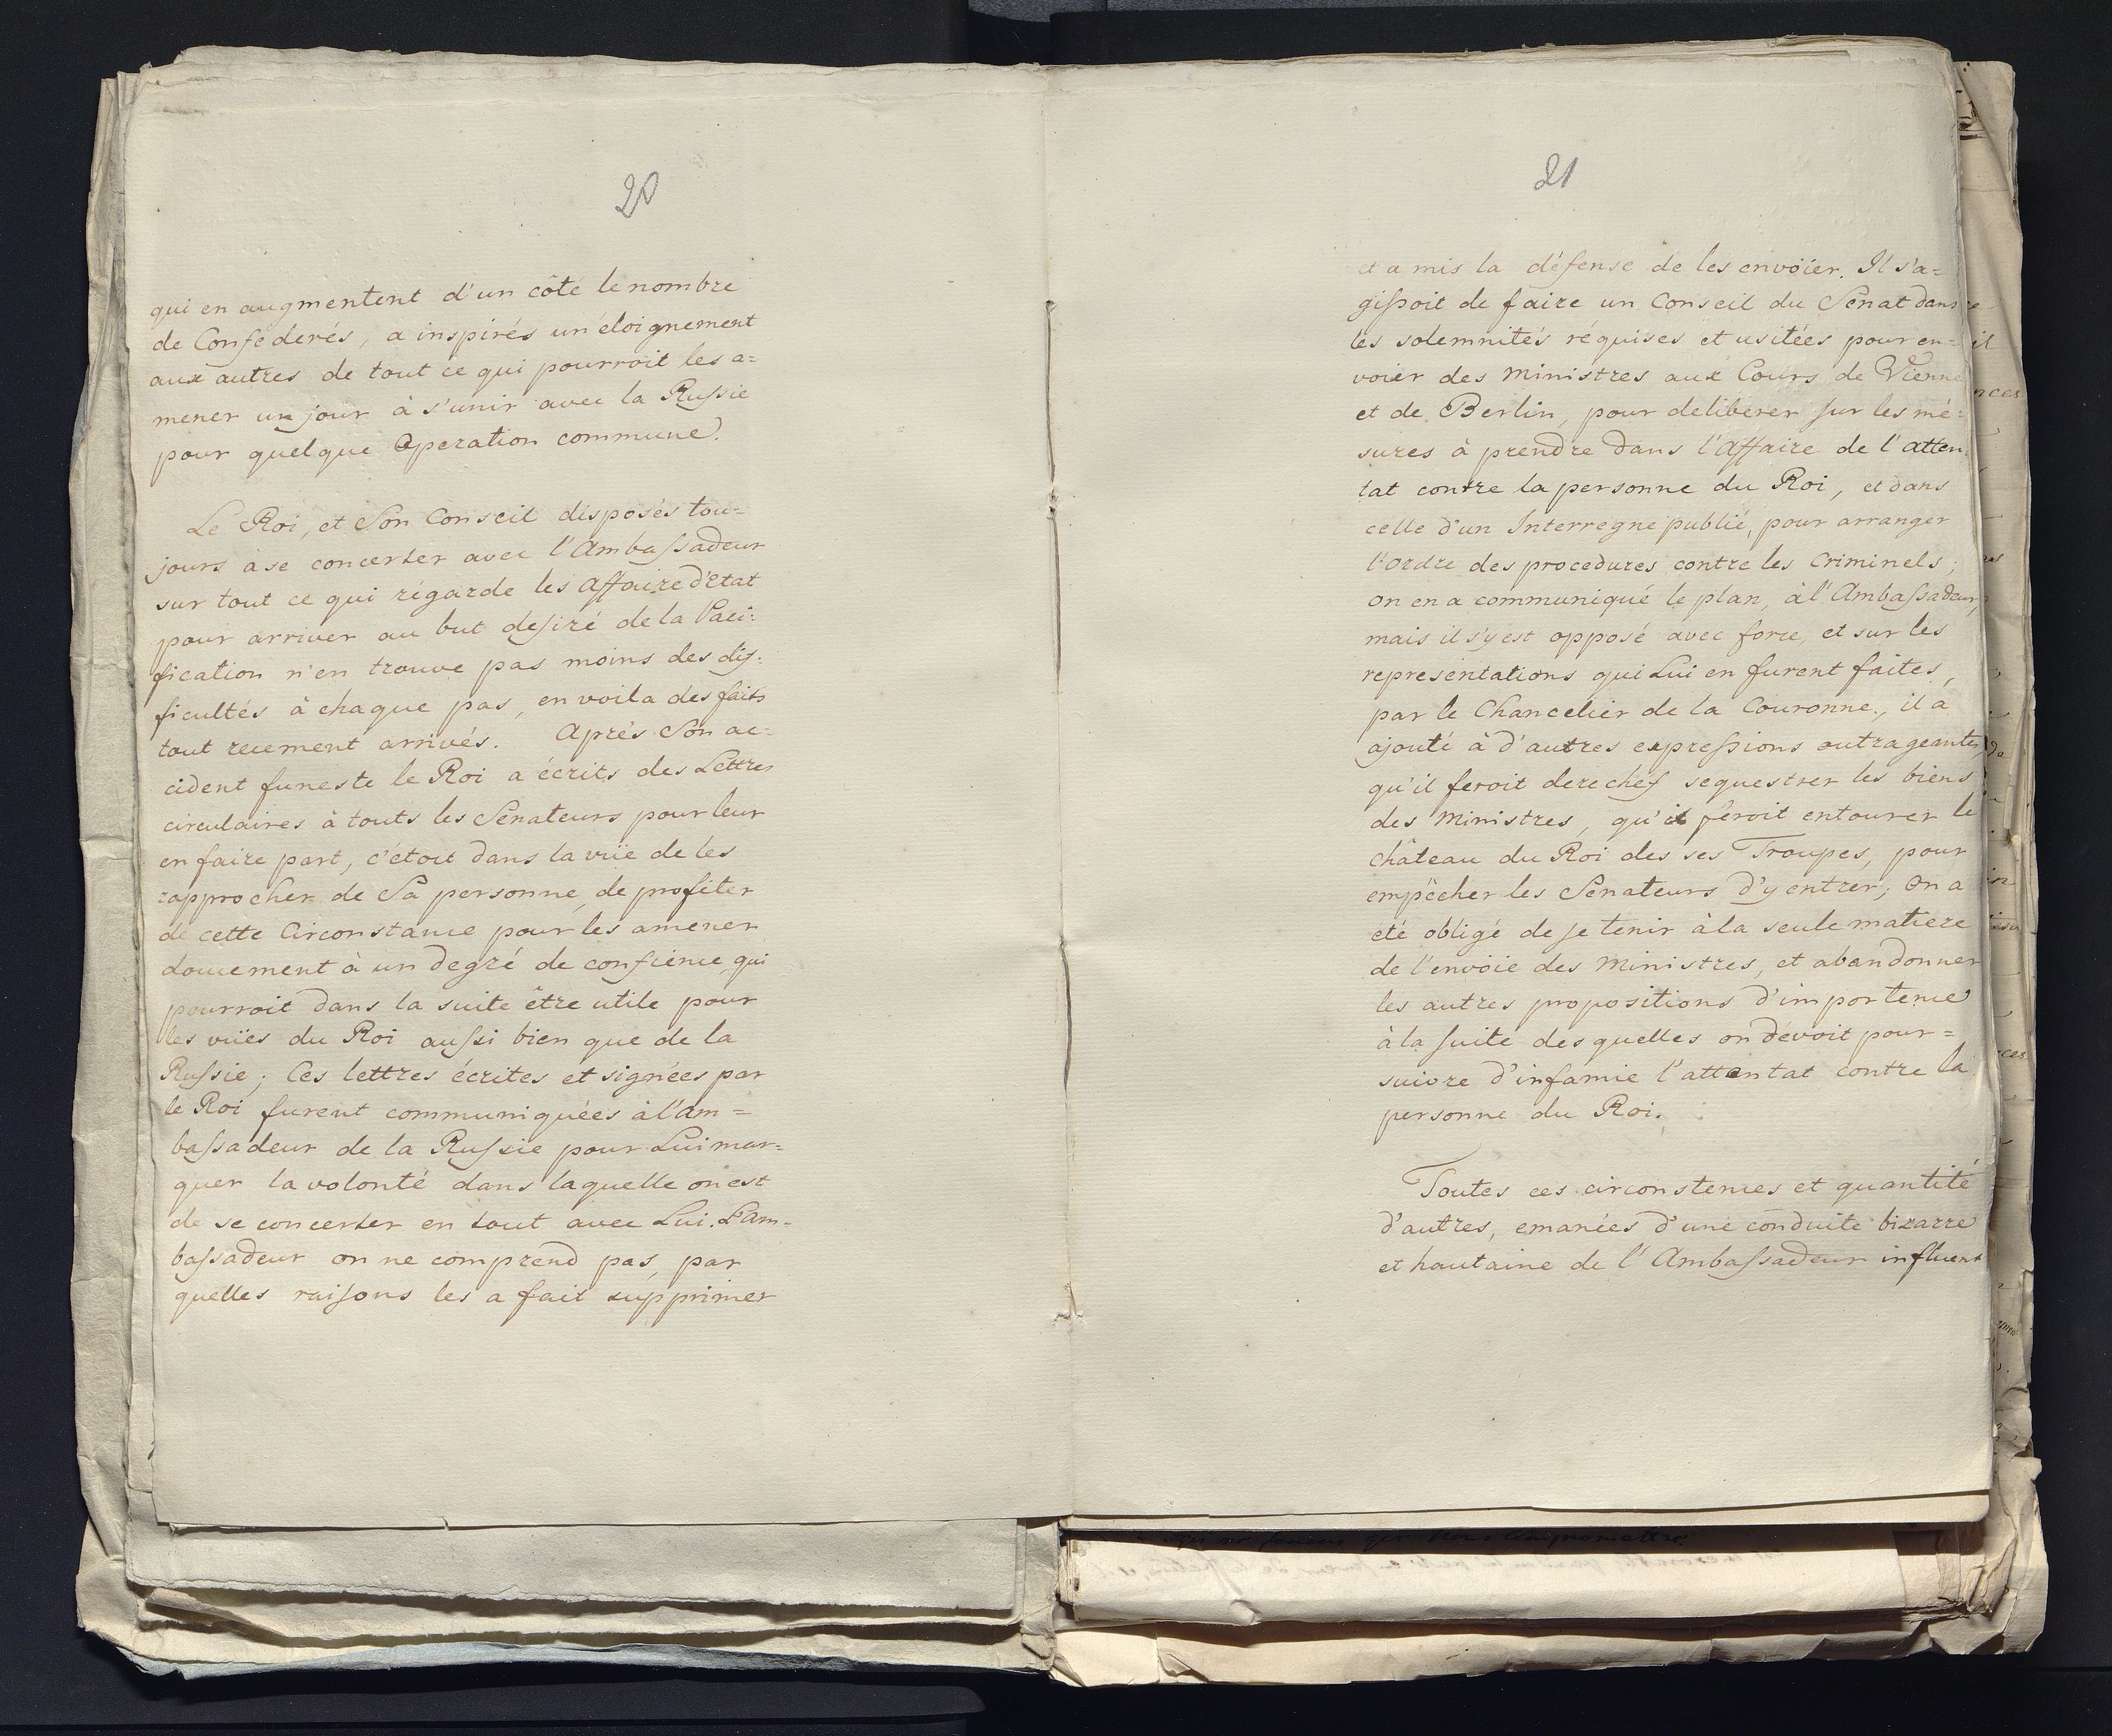 20
qui en augmentent d'un côté le nombre
de Confederés, a inspirés un éloignement
aux autres de tout ce qui pourroit les a=
mener un jour à s'unir avec la Russie
pour quelque Operation commune.
Le Roi, et Son Conseil disposés tou=
jours à se concerter avec l'Ambassadeur
sur tout ce qui régarde les Affaire d'Etat
pour arriver au but desiré de la Paci=
fication n'en trouve pas moins des dif=
ficultés à chaque pas, en voila des faits
tout recement arrivés. Après Son ac=
cident funeste le Roi a écrits des Lettres
circulaires à touts les Senateurs pour leur
en faire part, c'étoit dans la vüe de les
rapprocher de Sa personne, de profiter
de cette Circonstance pour les amener
doucement à un degré de confience qui
pourroit dans la suite être utile pour
les vües du Roi aussi bien que de la
Russie; Ces lettres écrites et signées par
le Roi furent communiquées à l'am=
bassadeur de la Russie pour Lui mar=
quer la volonté dans laquelle on est
de se concerter en tout avec Lui. L'am=
bassadeur on ne comprend pas, par
quelles raisons les a fait supprimer
21
et a mis la défense de les envöier. Il s'a=
gissoit de faire un Conseil du Senat dans
les solemnités réquises et usitées pour en=
voier des Ministres aux Cours de Vienne
et de Berlin, pour deliberer sur les mé=
sures à prendre dans l'Affaire de l'atten=
tat contre la personne du Roi, et dans
celle d'un Interregne publié, pour arranger
l'ordre des procedures contre les Criminels;
on en a communiqué le plan, à l'Ambassadeur,
mais il s'y est opposé avec force, et sur les
representations qui Lui en furent faites,
par le Chancelier de la Couronne, il a
ajouté à d'autres expressions outrageantes,
qu'il feroit derechef sequestrer les biens
des Ministres, qu'il feroit entourer le
château du Roi des ses Troupes, pour
empêcher les Senateurs d'y entrer; On a
eté obligé de se tenir à la seule matiere
de l'envöie des Ministres, et abandonner
les autres propositions d'importence
à la suite des quelles on devoit pour=
suivre d'infamie l'attentat contre la
personne du Roi.
Toutes ces circonstences et quantité
d'autres, emanées d'une conduite bizarre
et hautaine de l'Ambassadeur influent